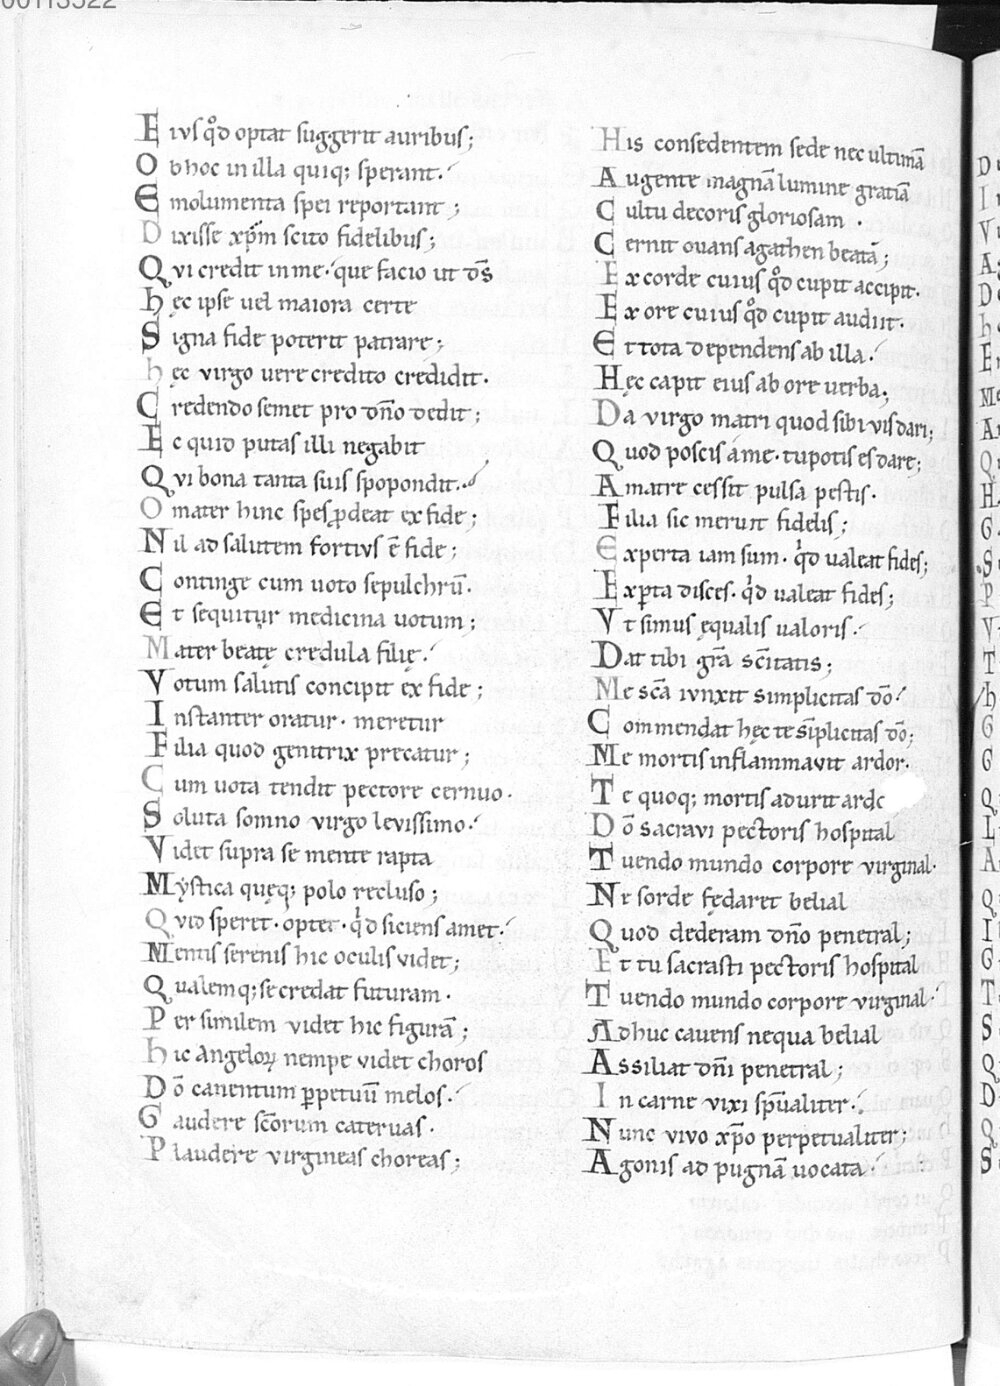 00113522
Eius qđ optat suggerit auribus;
Ob hoc in illa quiq; sperant.
Emolumenta spei reportant;
Dixisse xp̄m scito fidelibus;
Qui credit in me. que facio ut dō̄s
hęc ipse uel maiora certe
Signa fide poterit patrare;
hęc virgo uere credito credidit.
Credendo semet pro dn̄o dedit;
Ec quid putas illi negabit
Qui bona tanta suis spopondit.
O mater hinc spes ꝓdeat ex fide;
Nil ad salutem fortius ē fide;
Continge cum uoto sepulchrū.
Et sequitur medicina uotum;
Mater beatę credula filię.
Votum salutis concipit ex fide;
Instanter oratur. meretur
Filia quod genitrix precatur;
Cum uota tendit pectore cernuo.
Soluta somno virgo levissimo.
Videt supra se mente rapta
Mẏstica quęq; polo recluso;
Quid speret. optet. qđ siciens amet.
Mentis serenis hic oculis videt;
Qualemq; se credat futuram.
Per similem videt hic figurā;
hic angeloꝝ nempe videt choros
Dō canentum ꝑpetuū melos.
Gaudere sc̄orum cateruas.
Plaudere virgineas choreas;
His consedentem sede nec ultimā
Augente magnā lumine gratiā
Cultu decoris gloriosam.
Cernit ouans agathen beatā;
Ex corde cuius qđ cupit accipit.
Ex ore cuius qđ cupit audiit.
Et tota dependens ab illa.
Hęc capit eius ab ore uerba;
Da virgo matri quod sibi vis dari;
Quod poscis a me. tu potis es dare;
A matre cessit pulsa pestis.
Filia sic meruit fidelis;
Experta iam sum. qđ ualeat fides;
Exꝑta disces. qđ ualeat fides;
Vt simus ęqualis ualoris.
Dat tibi gr̄a sc̄itatis;
Me sc̄a iunxit simplicitas dō.
Commendat hęc te sīplicitas dō;
Me mortis inflammavit ardor.
Te quoq; mortis adurit ardo
Dō sacravi pectoris hospital
Tuendo mundo corpore virginal.
Ne sorde fędaret belial
Quod dederam dn̄o penetral;
Et tu sacrasti pectoris hospital
Tuendo mundo corpore virginal.
Adhuc cavens nequa belial
Assiliat dn̄i penetral;
In carne vixi sp̄ualiter.
Nunc vivo xp̄o perpetualiter;
Agonis ad pugnā uocata.